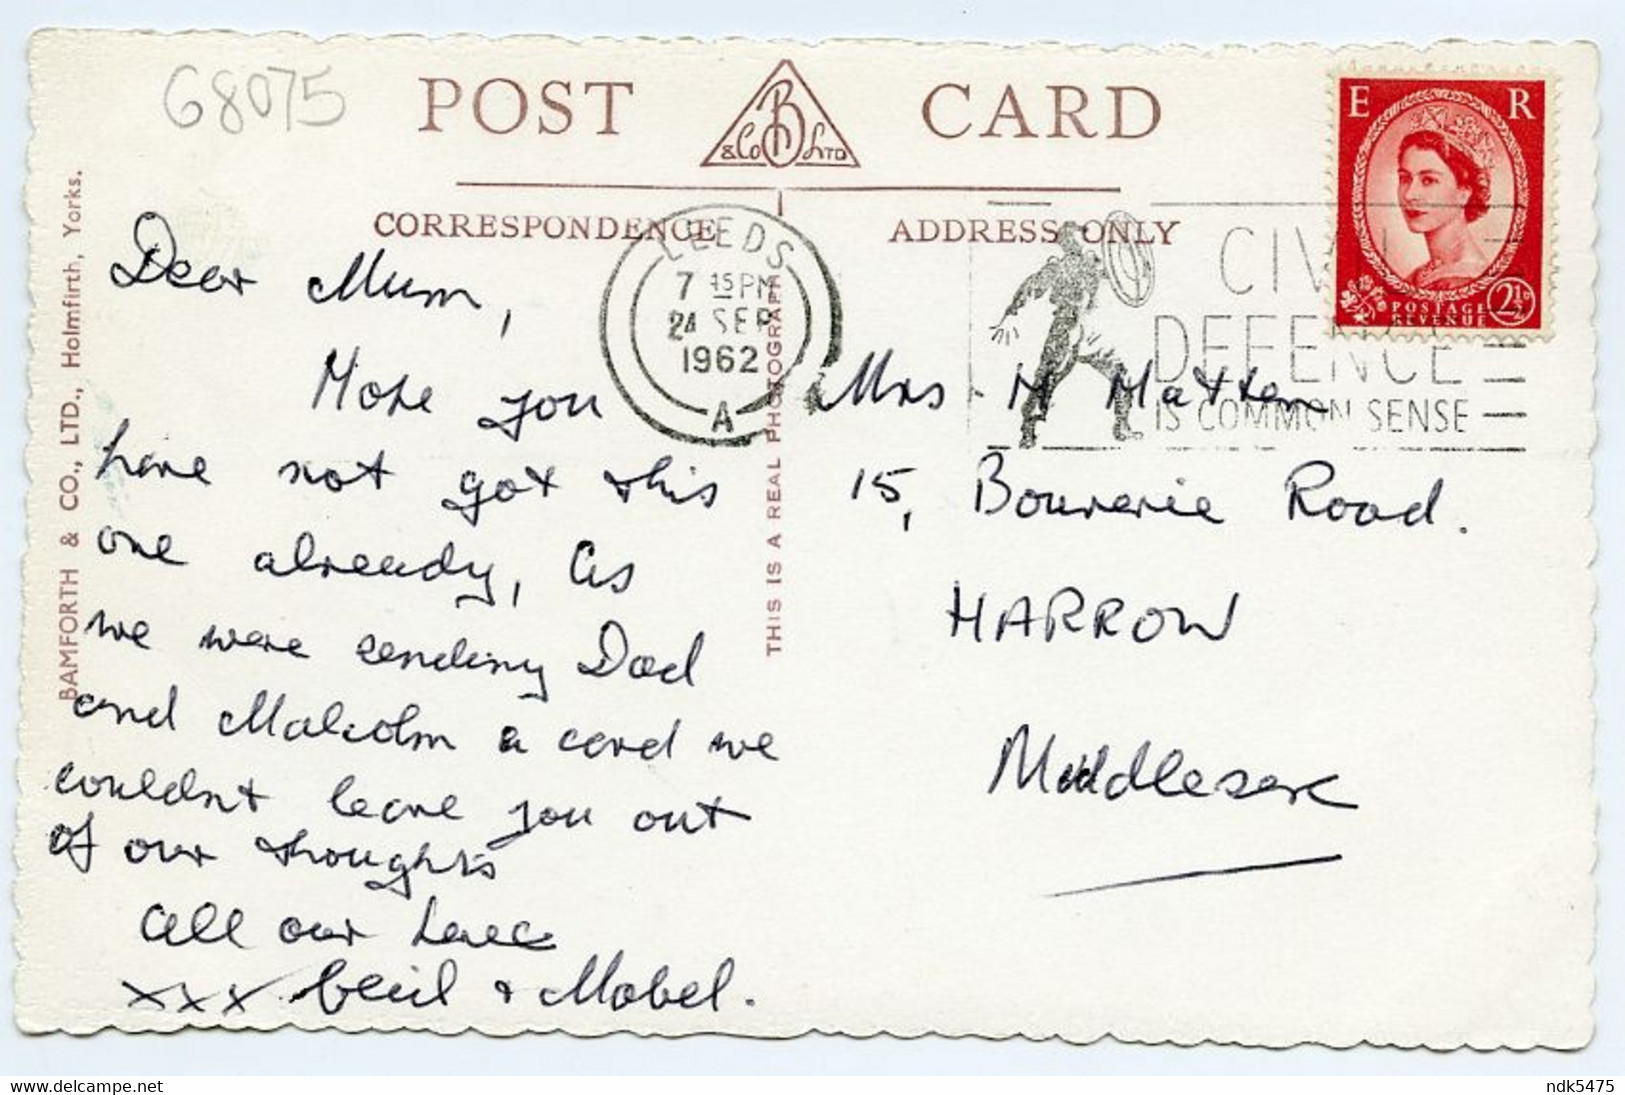 G8075
POST CARD
B
& Co LTD
CORRESPONDENCE
ADDRESS ONLY
E R
POSTAGE
REVENUE
2½D
LEEDS
7 45 PM
24 SEP
1962
A
CIVIL
DEFENCE
IS COMMON SENSE
BAMFORTH & CO., LTD., Holmfirth, Yorks.
THIS IS A REAL PHOTOGRAPH
Dear Mum,
Hope you
have not got this
one already, as
we were sending Dad
and Malcolm a card we
couldnt leave you out
of our thoughts
all our love
xxx Cecil & Mabel.
Mrs. M Matten
15, Bouverie Road.
HARROW
Middlesex
ndk5475